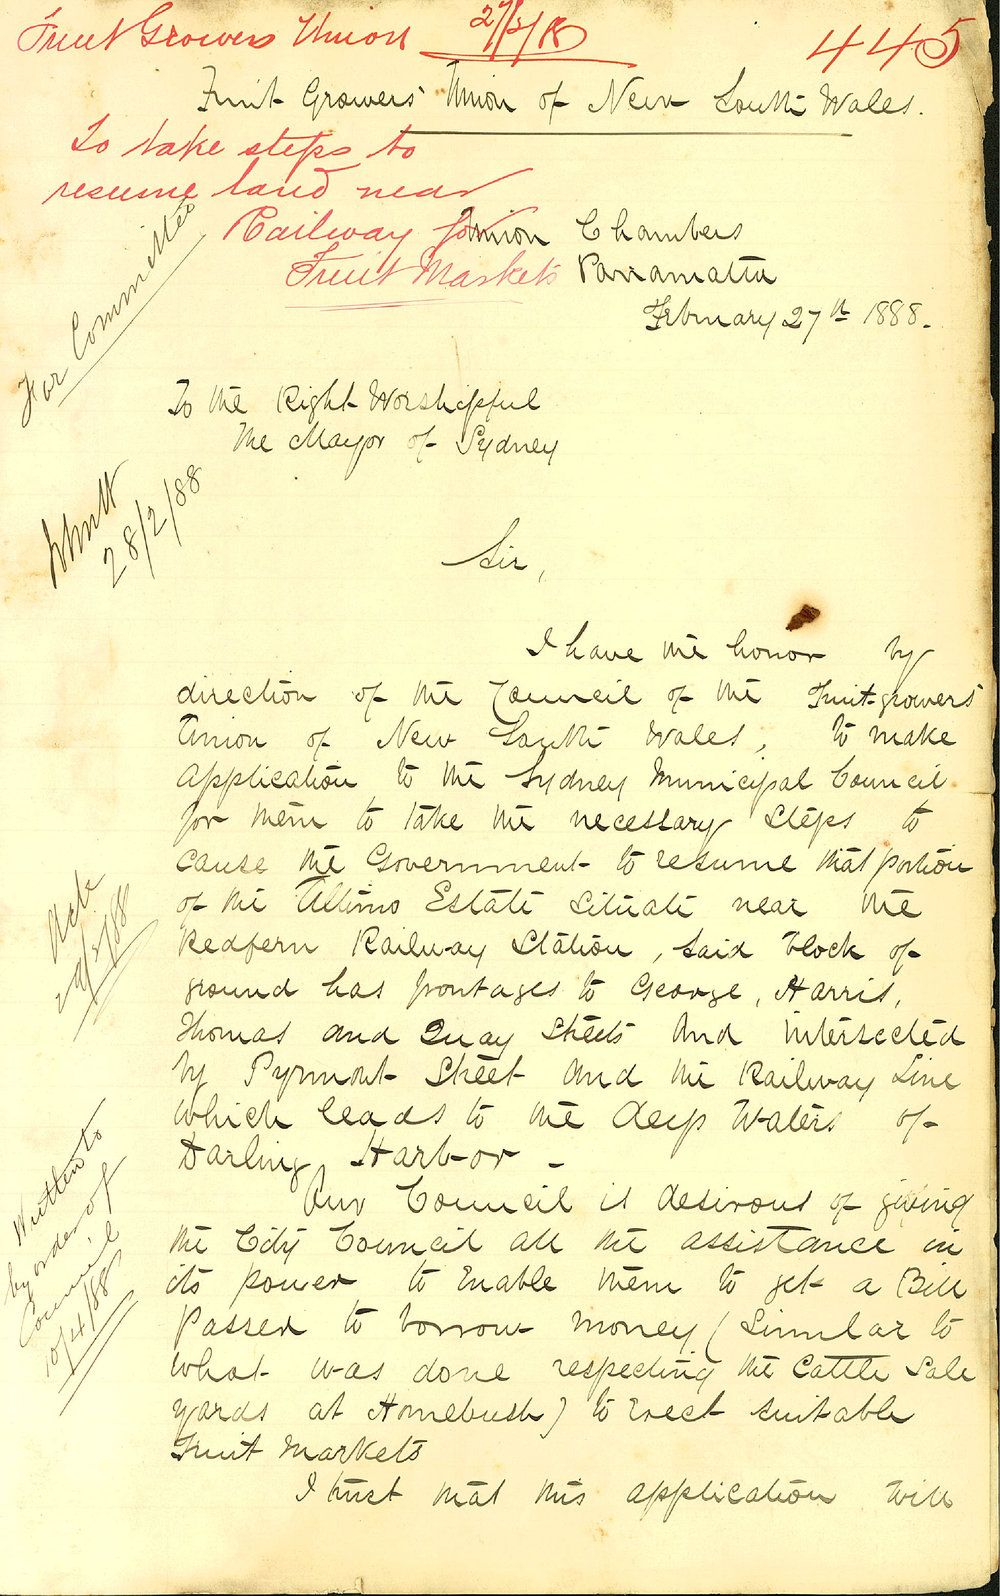 Fruit Growers Union 27/2/88 445
Fruit Growers' Union of New South Wales.
To take steps to
resume land near
Railway for
Fruit Markets
Union Chambers
Parramatta
February 27th 1888.
For Committee
28/2/88
To the Right Worshipful
The Mayor of Sydney
Sir,
I have the honor by
direction of the Council of the Fruit-growers'
Union of New South Wales, to make
application to the Sydney Municipal Council
for them to take the necessary steps to
cause the Government to resume that portion
of the Ultimo Estate situate near the
Redfern Railway Station, said block of
ground has frontages to George, Harris,
Thomas and Quay Streets and intersected
by Pyrmont Street and the Railway Line
which leads to the deep waters of
Darling Harbor -
Our Council is desirous of giving
the City Council all the assistance in
its power to enable them to get a Bill
passed to borrow money (similar to
what was done respecting the Cattle Sale
yards at Homebush) to erect suitable
Fruit Markets
I trust that this application will
Ack
29/2/88
Written to
by order of
Council
10/4/88